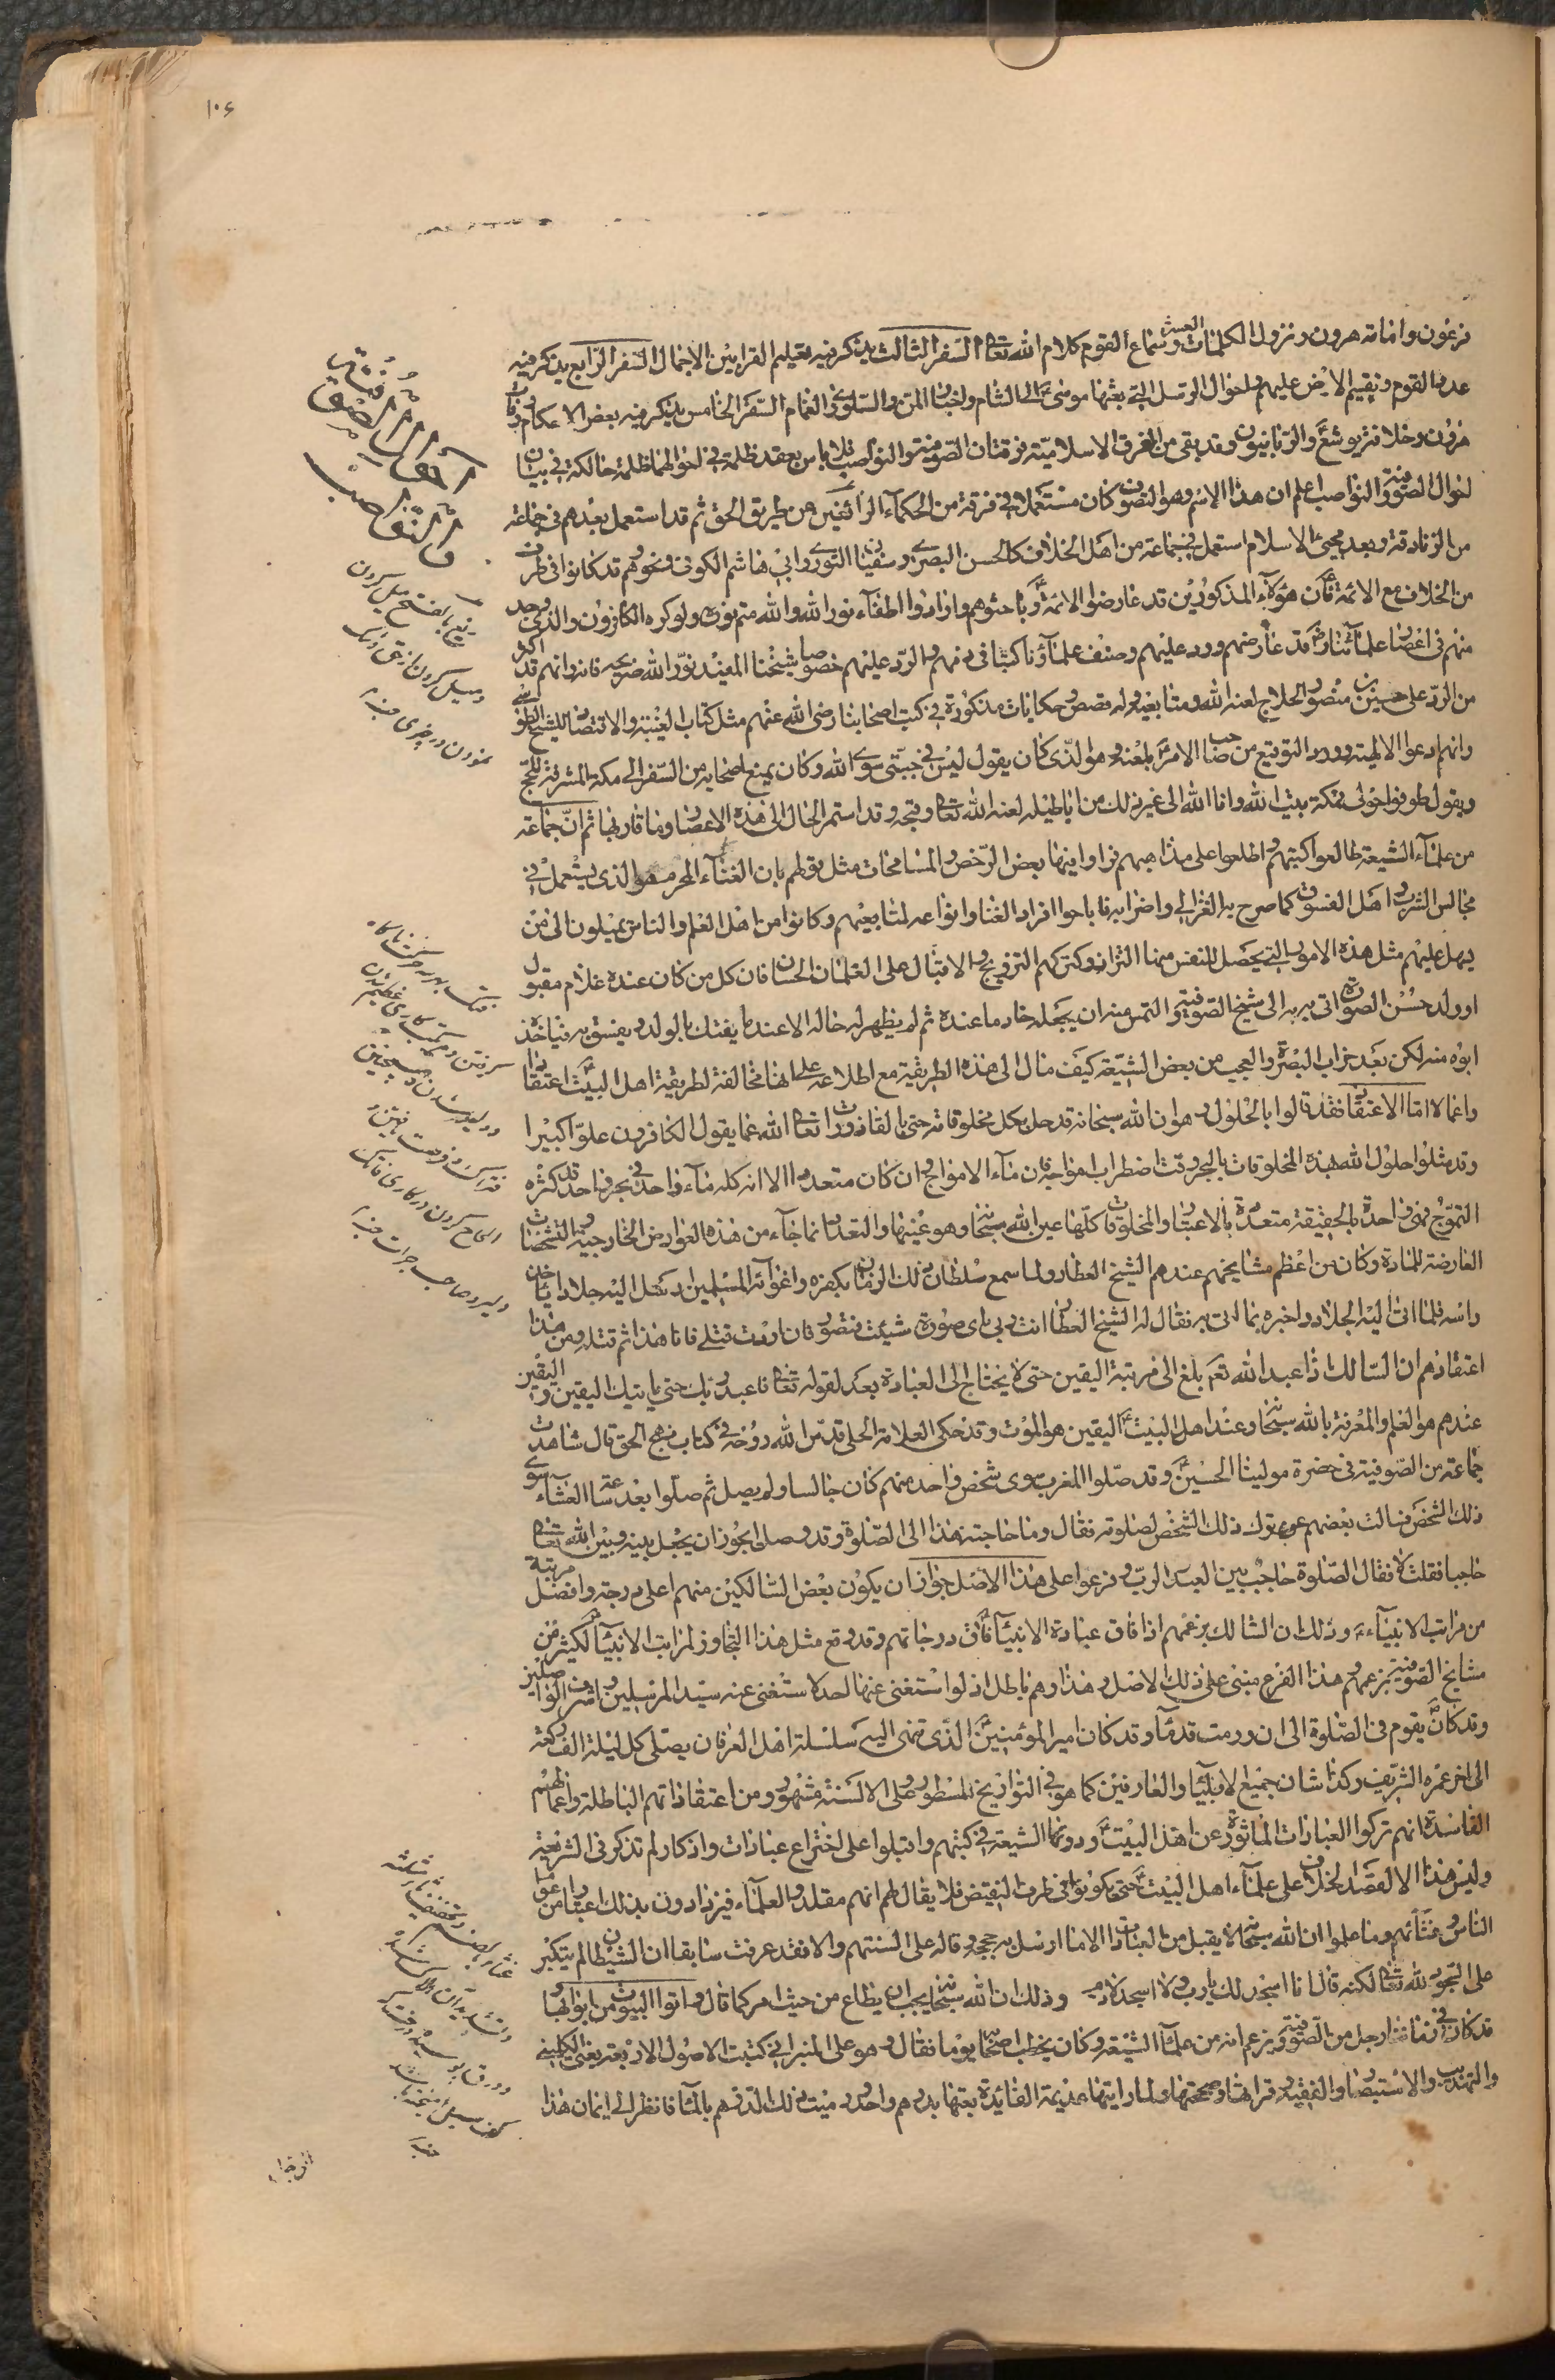 ١٠٦
فرعون وامانه هرون ونزول الكلمات العشر وسماع القوم كلام الله تعالى السفر الثالث يذكر فيه تعليم القرابين الاجمال السفر الرابع يذكر فيه
عدد القوم وتقسيم الارض عليهم واحوال الرسل التي بعثها موسى ع الى الشام واخبار المن والسلوى والغمام السفر الخامس يذكر فيه بعض الاحكام ووفات
هرون وخلافة يوشع ع والربانيون وقد بقى من الفرق الاسلامية فرقتان الصوفية والنواصب فلا باس بعقد ظلمة في احوالهما ظلمة حالكة في بيان
احوال الصوفية والنواصب اعلم ان هذا الاسم وهو التصوف كان مستعملا في فرقة من الحكماء الزائغين عن طريق الحق ثم قد استعمل بعدهم في جماعة
من الزنادقة وبعد مجيئ الاسلام استعمل في جماعة من اهل الخلاف كالحسن البصري وسفيان الثوري وابي هاشم الكوفي ونحوهم قد كانوا في طرف
من الخلاف مع الائمة ع فان هؤلاء المذكورين قد عارضوا الائمة ع وباحثوهم وارادوا اطفاء نور الله والله متم نوره ولو كره الكافرون والذى وجد
منهم في اعصار علمائنا رض قد عارضهم ورد عليهم وصنف علماؤنا كتبا في ذمهم والرد عليهم خصوصا شيخنا المفيد نور الله ضريحه فانه رانهم قد اكثر
من الرد على حسين بن منصور الحلاج لعنه الله ومتابعيه وله قصص وحكايات مذكورة في كتب اصحابنا رضى الله عنهم مثل كتاب الغيبة والاقتصاد للشيخ الطوسي
وانهم ادعوا الالهية وورد التوقيع من صاحب الامر ع بلعنه وهو الذى كان يقول ليس في جبتى سوى الله وكان يمنع اصحابه من السفر الى مكة المشرفة للحج
ويقول طوفوا حولى فمكة بيت الله وانا الله الى غير ذلك من اباطيله لعنه الله تعالى وقبحه وقد استمر الحال الى هذه الاعصار وما قاربها ثم ان جماعة
من علماء الشيعة طالعوا كتبهم واطلعوا على مذاهبهم فراوا فيها بعض الرخص والمسامحات مثل قولهم بان الغناء المحرم هو الذى يستعمل في
مجالس الشرب واهل الفسوق كما صرح به الغزالي واضرابه فاباحوا افراد الغناء وانواعه لمتابعيهم وكانوا من اهل العلم والناس يميلون الى من
يسهل عليهم مثل هذه الامور التي يحصل للنفس منها التذاذ وكتركهم التزويج والاقبال على الغلمان الحسان فان كل من كان عنده غلام مقبول
او ولد حسن الصورة اتى به الى شيخ الصوفية والتمس منه ان يجعله خادما عنده ثم لم يظهر له حاله الا عند ما يفتك بالولد ويفسق به فياخذ
ابوه منه لكن بعد خراب البصرة والعجب من بعض الشيعة كيف مال الى هذه الطريقة مع اطلاعه على انها مخالفة لطريقة اهل البيت ع اعتقادا
واعمالا اما الاعتقاد فقد قالوا بالحلول وهو ان الله سبحانه قد حل بكل مخلوقاته حتى بالقاذورات تعالى الله عما يقول الكافرون علوا كبيرا
وقد مثلوا حلول الله بهذه المخلوقات بالبحر وقت اضطراب امواجه فان ماء الامواج وان كان متعددا الا انه كله ماء واحد في بحر واحد قد كثره
التموج فهى واحدة بالحقيقة متعددة بالاعتبار والمخلوقات كلها عين الله سبحانه وهو عينها والتعدد انما جاء من هذه العوارض الخارجية والتشخصات
العارضة للمادة وكان من اعظم مشايخهم عندهم الشيخ العطار ولما سمع سلطان ذلك الزمان بكفره واغوائه المسلمين ارسل اليه جلادا ياخذ
راسه فلما اتى اليه الجلاد واخبره بما اتى به فقال له الشيخ العطار انت ربى باى صورة شئت فتصور فان اردت قتلى فانا هذا ثم قتله ومن هذا
اعتقادهم ان السالك اذا عبد الله تعم بلغ الى مرتبة اليقين حتى لا يحتاج الى العبادة بعد لقوله تعالى فاعبد ربك حتى ياتيك اليقين واليقين
عندهم هو العلم والمعرفة بالله سبحانه وعند اهل البيت ع اليقين هو الموت وقد حكى العلامة الحلى قدس الله روحه في كتاب نهج الحق قال شاهدت
جماعة من الصوفية في حضرة مولينا الحسين ع وقد صلوا المغرب سوى شخص واحد منهم كان جالسا ولم يصل ثم صلوا بعد ساعة العشاء سوى
ذلك الشخص فسالت بعضهم عن ترك ذلك الشخص لصلوته فقال وما حاجة هذا الى الصلوة وقد وصل ايجوز ان يجعل بينه وبين الله تعالى
حاجبا فقلت لا فقال الصلوة حاجب بين العبد والرب وفرعوا على هذا الاصل جواز ان يكون بعض السالكين منهم اعلى درجة وافضل مرتبة
من مراتب الانبياء ع وذلك ان السالك بزعمهم اذا فاق عبادة الانبياء ع فاق درجاتهم وقد وقع مثل هذا التجاوز لمراتب الانبياء لكثير من
مشايخ الصوفية بزعمهم وهذا الفرع مبنى على ذلك الاصل وهذا وهم باطل اذ لو استغنى عنها احد لاستغنى عنه سيد المرسلين واشرف الواصلين
وقد كان ع يقوم في الصلوة الى ان ورمت قدماه وقد كان امير المؤمنين ع الذى تنتمى اليه سلسلة اهل العرفان يصلى كل ليلة الف ركعة
الى اخر عمره الشريف وكذا شان جميع الاولياء والعارفين كما هو في التواريخ مسطور وعلى الالسنة مشهور ومن اعتقاداتهم الباطلة واعمالهم
الفاسدة انهم تركوا العبادات الماثورة عن اهل البيت ع ودونها الشيعة في كتبهم واقبلوا على اختراع عبادات واذكار لم تذكر في الشريعة
وليس هذا الا لقصد الخلاف على علماء اهل البيت ع حتى يكونوا في طرف النقيض فلا يقال لهم انهم مقلدو العلماء فيزدادون بذلك اعتبارا من عوام
الناس وغثائهم وما علموا ان الله سبحانه لا يقبل من العبادات الا ما ارسل به حججه وقاله على السنتهم والا فقد عرفت سابقا ان الشيطان لم يتكبر
على السجود لله تعالى لكنه قال انا اسجد لك يا رب ولا اسجد لادم وذلك ان الله سبحانه يحب ان يطاع من حيث امر كما قال واتوا البيوت من ابوابها
قد كان في زماننا رجل من الصوفية ويزعم انه من علماء الشيعة وكان يخطب اصحابه يوما فقال وهو على المنبر اني كتبت الاصول الاربعة يعنى الكليني
والتهذيب والاستبصار والفقيه وقراتها وصححتها ولما رايتها عديمة الفائدة بعتها بدرهم واحد ورميت ذلك الدرهم بالماء فانظر الى ايمان هذا
احوال الصوفية
والنواصب
زيغ بالفتح ميل كردن
وميل كردن از حق وشك
نمودن در چيزى منه
فتك بهر سه حركت ناگاه
گرفتن ومرتكب كارى عظيم شدن
ودلير شدن
الحاح كردن در كارى فاتك
دلير وصاحب جرات منه
غثاء بضم وتخفيف ثاء مثلثه
وتشديد آن
كف سيل
منه
الرجل